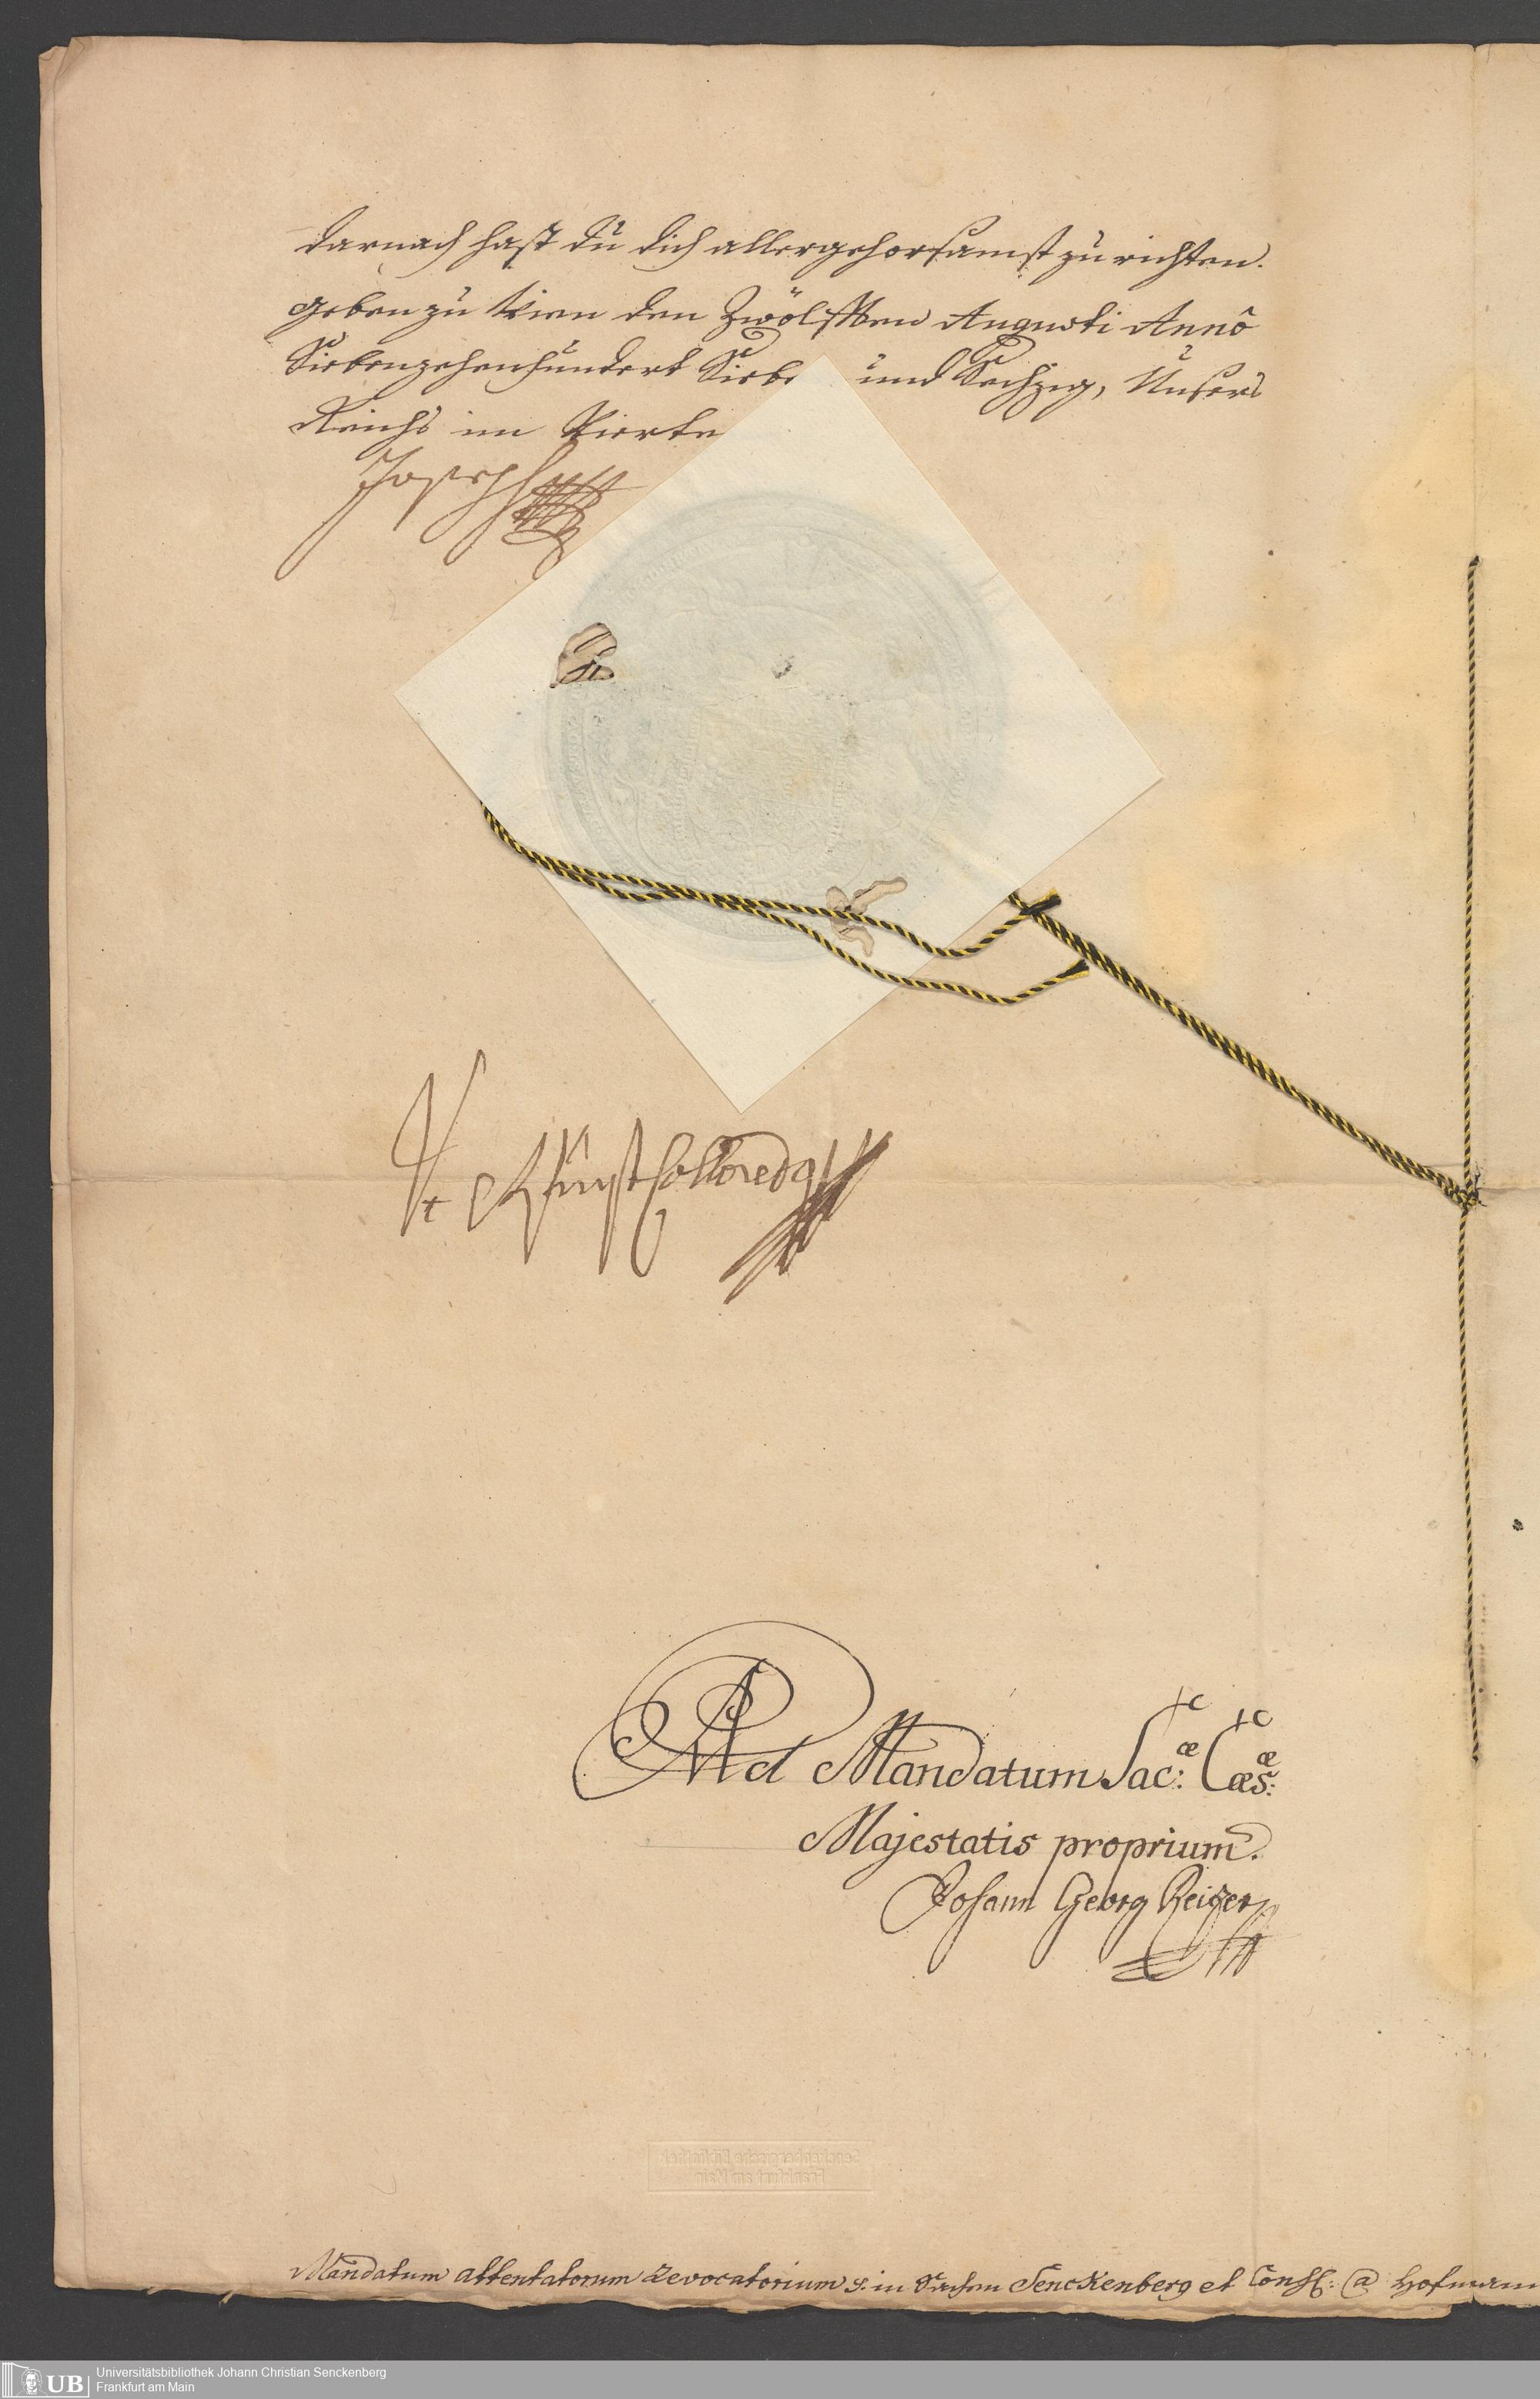 darnach hast du dich allergehorsamst zu richten.
geben zu Wien den Zwölfften Augusti Annô
Siebenzehenhundert Siebe und Sechzig, Unsers
Reichs im Vierte
Joseph
Vt RFürst Colloredo
Ad Mandatum Sac:æ Cæs:æ
Majestatis proprium.
Johann Georg Reizer
Senckenbergische Bibliothek
Frankfurt am Main
Mandatum attentatorum revocatorium S. in Sachen Senckenberg et Cons: @ Hofmann
UB
Universitätsbibliothek Johann Christian Senckenberg
Frankfurt am Main